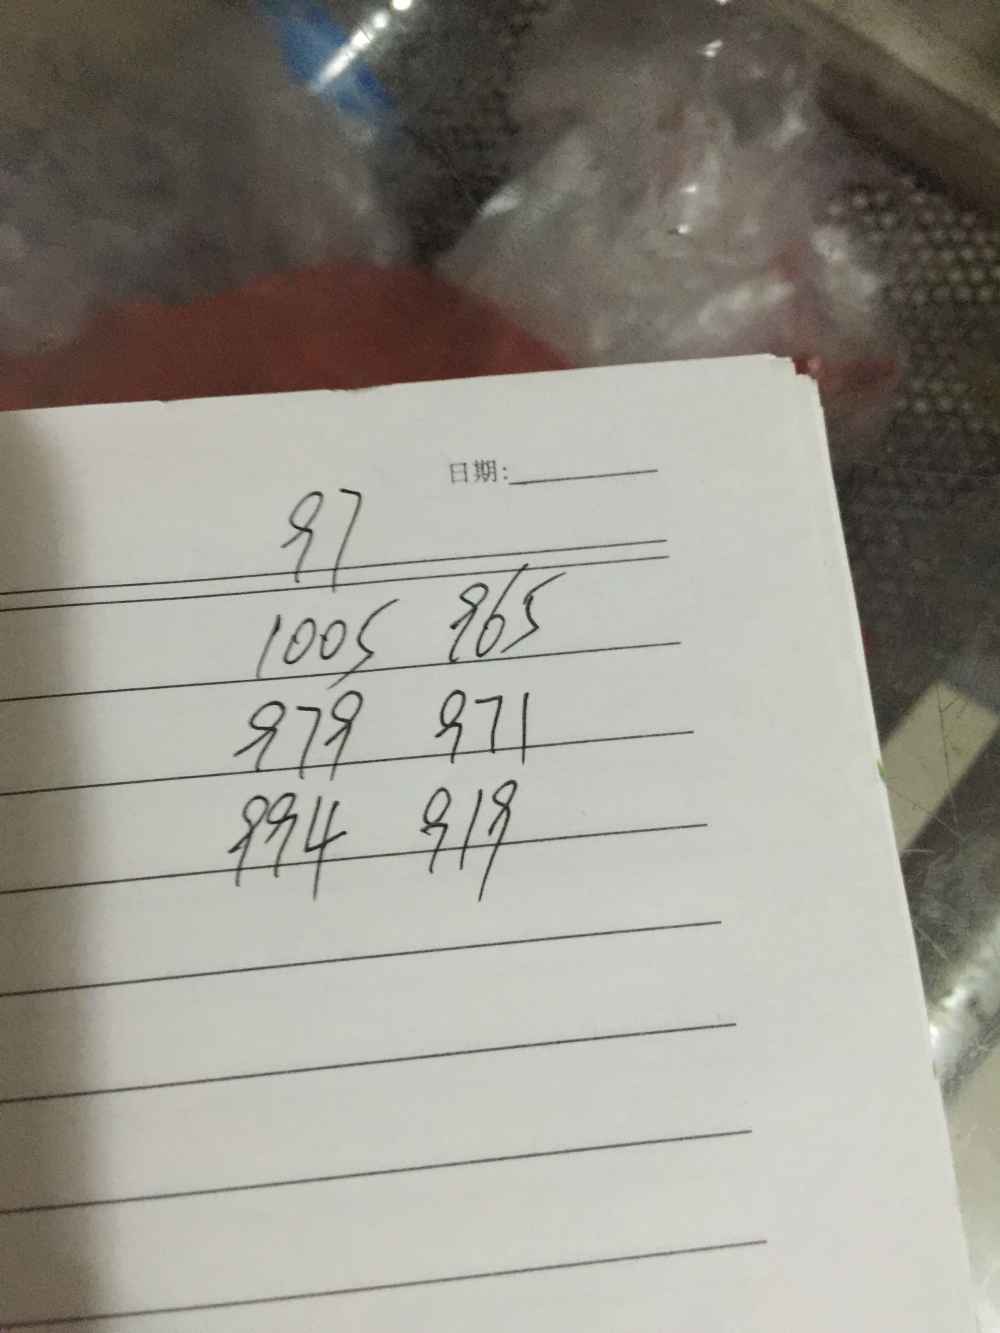 日期:
97
1005 965
979 971
994 919